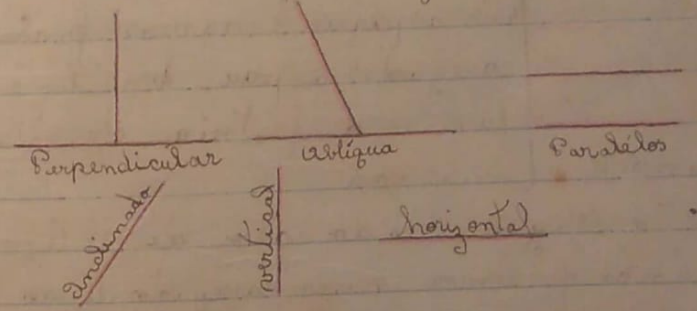 Perpendicular
Oblíqua
Paralélos
Inclinada
vertical
horizontal